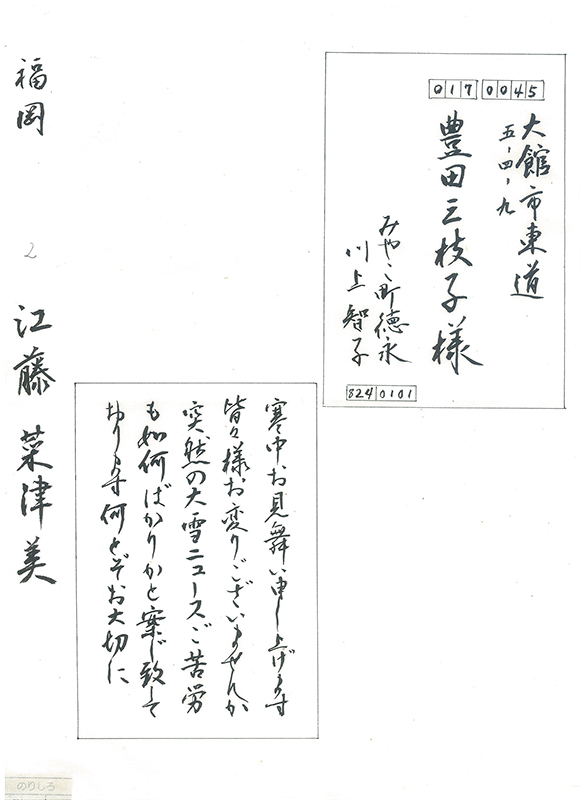 0170045
大館市東道
五-四-九
豊田三枝子様
みやこ町徳永
川上智子
8240101
寒中お見舞い申し上げます
皆々様お変りございませんか
突然の大雪ニュースご苦労
も如何ばかりかと案じ致して
おります何とぞお大切に
福岡
2
江藤菜津美
のりしろ